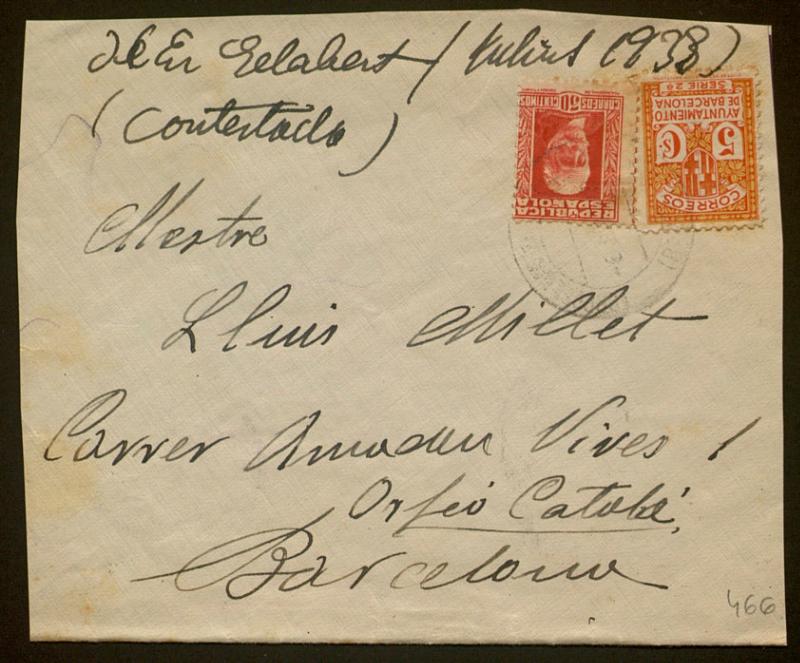 d'En Gelabert (Juliol 1938)
(Contestada)
Mestre
Lluis Millet
Carrer Amadeu Vives 1
Orfeó Català,
Barcelona
466
REPÚBLICA
ESPAÑOLA
CORREOS 50 CENTIMOS
CORREOS
5 Cs.
AYUNTAMIENTO
DE BARCELONA